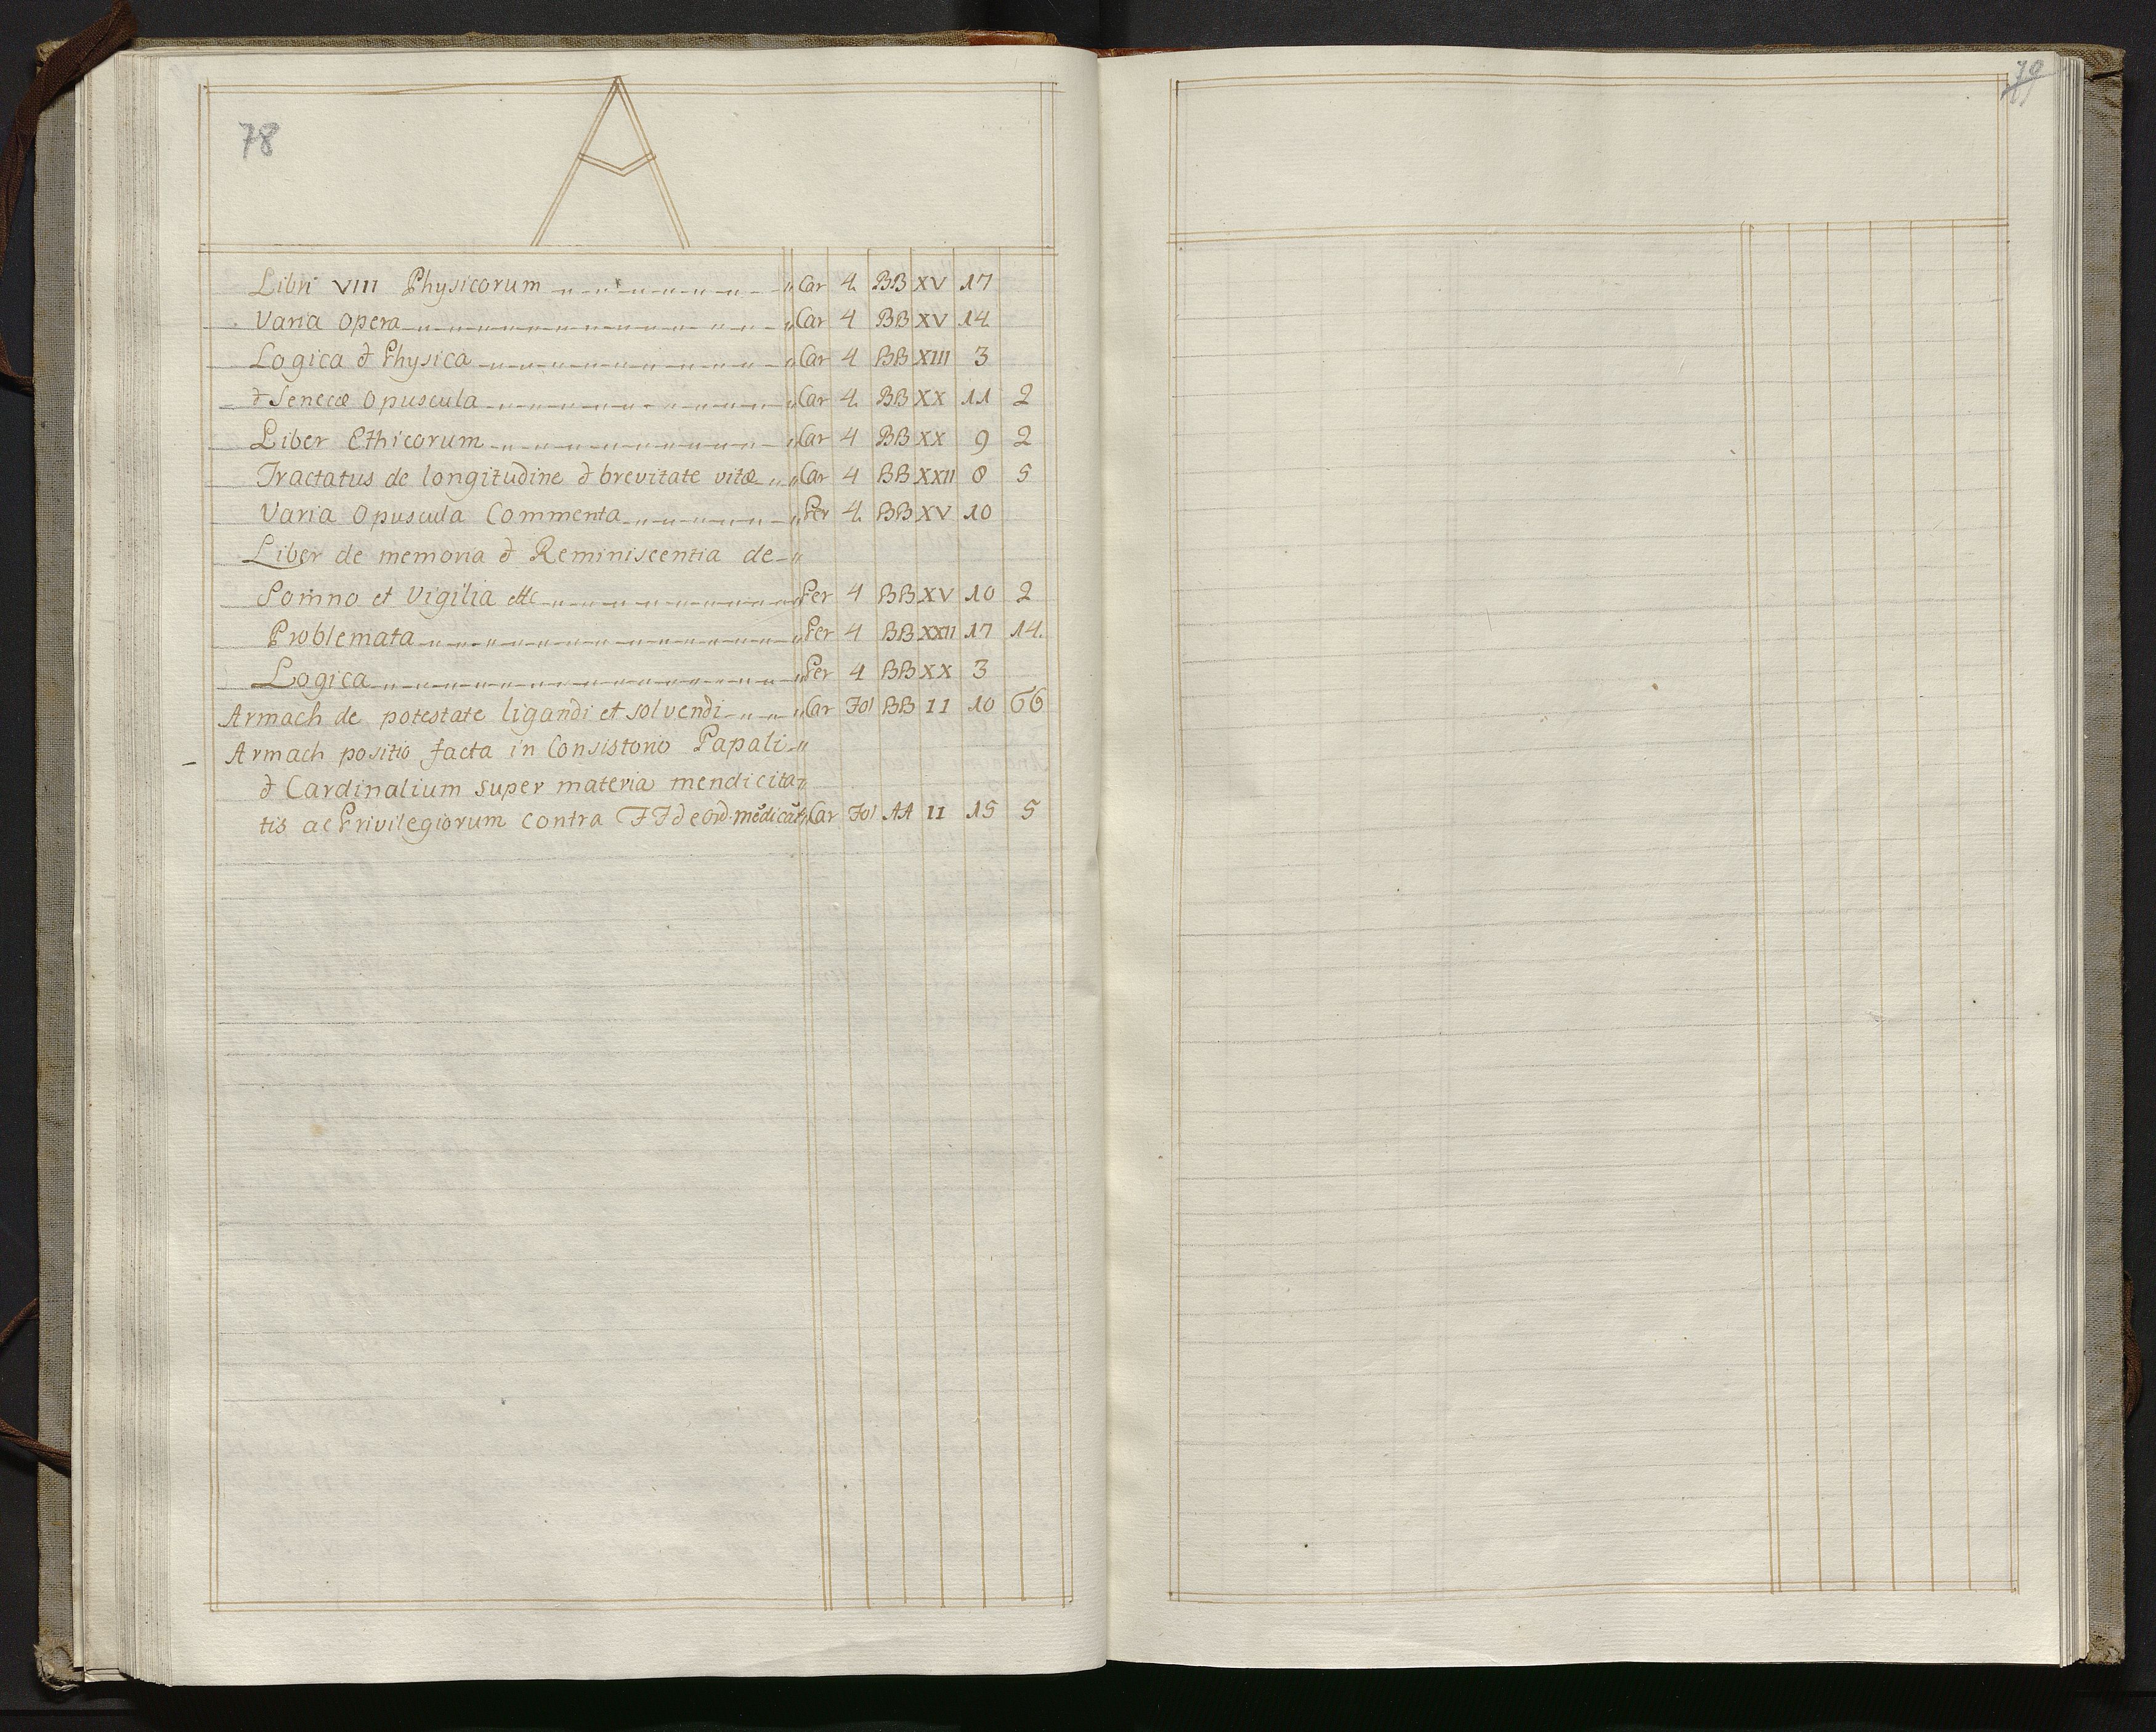 78
A
Libri VIII Physicorum Car 4. BB XV 17
Varia Opera Car 4 BB XV 14
Logica & Physica Car 4 BB XIII 3
& Senecæ Opuscula Car 4. BB XX 11 2
Liber Ethicorum Car 4 BB XX 9 2
Tractatus de longitudine & brevitate vitæ Car 4 BB XXII 8 5
Varia Opuscula Commenta Per 4. BB XV 10
Liber de memoria & Reminiscentia de
Somno et Vigilia etc Per 4 BB XV 10 2
Problemata Per 4 BB XXII 17 14.
Logica Per 4 BB XX 3
Armach de potestate ligandi et solvendi Car Fol BB II 10 66
Armach positio facta in Consistorio Papali
& Cardinalium super materia mendicita
tis ac Privilegiorum contra FF de Ord. Car Fol AA II 15 5
79